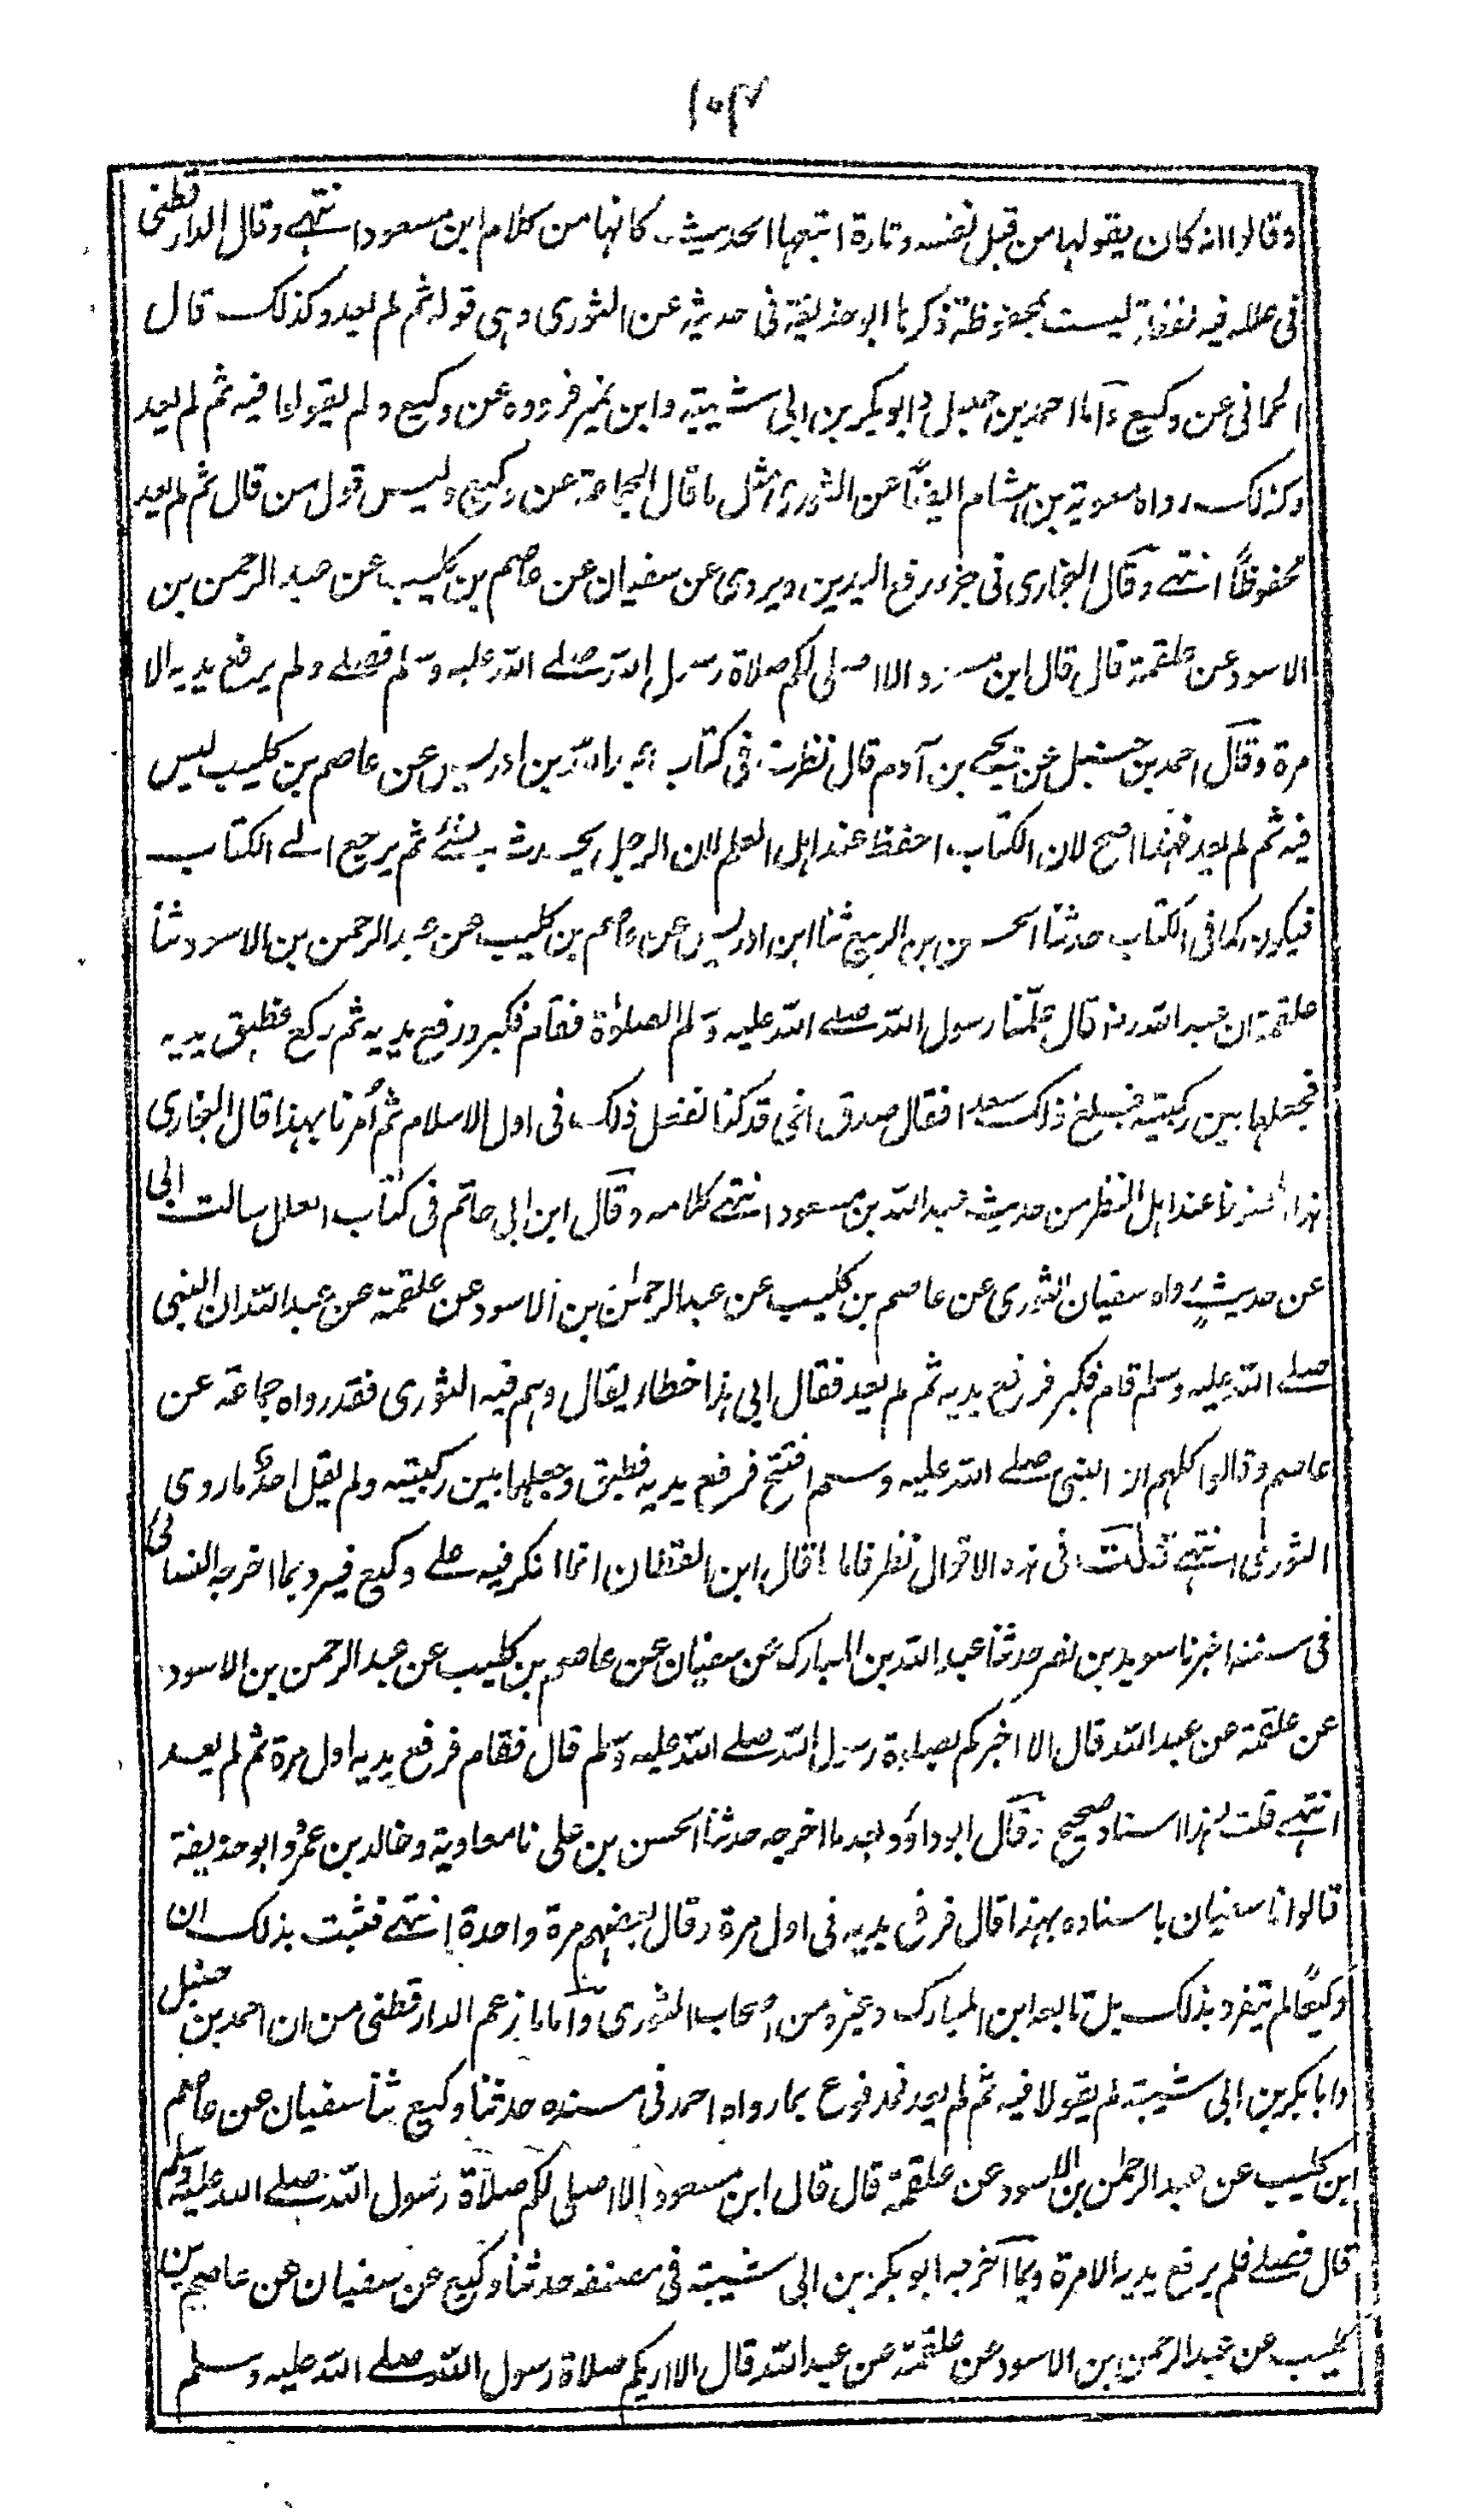 ١٠٤
وقالوا انه كان يقولها من قبل نفسه وتارة اتبعها الحديث كانها من كلام ابن مسعود انتهى وقال الدارقطنى
فى علله فيه لفظة ليست بمحفوظة ذكرها ابو حذيفة فى حديثه عن الثورى وهى قوله ثم لم يعد وكذلك قال
الحمانى عن وكيع واما احمد بن حنبل وابو بكر بن ابى شيبة وابن نمير فرووه عن وكيع ولم يقولوا فيه ثم لم يعد
وكذلك رواه معوية بن هشام ايضًا عن الثورى مثل ما قال الجماعة عن وكيع وليس قول من قال ثم لم يعد
محفوظًا انتهى وقال البخارى فى جزء رفع اليدين ويروى عن سفيان عن عاصم بن كليب عن عبد الرحمن بن
الاسود عن علقمة قال قال ابن مسعود الا اصلى لكم صلاة رسول الله صلى الله عليه وسلم فصلى ولم يرفع يديه الا
مرة وقال احمد بن حنبل عن يحيى بن آدم قال نظرت فى كتاب عبد الله بن ادريس عن عاصم بن كليب ليس
فيه ثم لم يعد فهذا اصح لان الكتاب احفظ عند اهل العلم لان الرجل يحدث بشئ ثم يرجع الى الكتاب
فيكون كما فى الكتاب حدثنا الحسن بن الربيع ثنا ابن ادريس عن عاصم بن كليب عن عبد الرحمن بن الاسود ثنا
علقمة ان عبد الله رض قال علّمنا رسول الله صلى الله عليه وسلم الصلوٰة فقام فكبر ورفع يديه ثم ركع فطبق يديه
فجعلها بين ركبتيه فبلغ ذلك سعدا فقال صدق اخى قد كنا نفعل ذلك فى اول الاسلام ثم اُمرنا بهذا قال البخارى
هذا المحفوظ عند اهل النظر من حديث عبد الله بن مسعود انتهى كلامه وقال ابن ابى حاتم فى كتاب العلل سالت ابى
عن حديث رواه سفيان الثورى عن عاصم بن كليب عن عبد الرحمٰن بن الاسود عن علقمة عن عبد الله ان النبى
صلى الله عليه وسلم قام فكبر فرفع يديه ثم لم يعد فقال ابى هذا خطاء يقال وهم فيه الثورى فقد رواه جماعة عن
عاصم وقالوا كلهم ان النبى صلى الله عليه وسلم افتتح فرفع يديه فطبق وجعلها بين ركبتيه ولم يقل احدٌ ما روى
الثورى انتهى قلت فى هذه الاقوال نظر فاما ما قال ابن القطان انما انكر فيه على وكيع فيرد بما اخرجه النسائى
فى سننه اخبرنا سويد بن نصر حدثنا عبد الله بن المبارك عن سفيان عن عاصم بن كليب عن عبد الرحمن بن الاسود
عن علقمة عن عبد الله قال الا اخبركم بصلاة رسول الله صلى الله عليه وسلم قال فقام فرفع يديه اول مرة ثم لم يعد
انتهى قلت هذا اسناد صحيح وقال ابو داؤد بعد ما اخرجه حدثنا الحسن بن على نا معاوية وخالد بن عمرو وابو حذيفة
قالوا نا سفيان باسناده بهذا قال فرفع يديه فى اول مرة وقال بعضهم مرة واحدة انتهى فثبت بذلك ان
وكيعًا لم يتفرد بذلك بل تابعه ابن المبارك وغيره من اصحاب الثورى واما ما زعم الدارقطنى من ان احمد بن حنبل
وابا بكر بن ابى شيبة لم يقولا فيه ثم لم يعد فمدفوع بما رواه احمد فى مسنده حدثنا وكيع ثنا سفيان عن عاصم
ابن كليب عن عبد الرحمٰن بن الاسود عن علقمة قال قال ابن مسعود الا اصلى لكم صلاة رسول الله صلى الله عليه وسلم
قال فصلى فلم يرفع يديه الا مرة وبما اخرجه ابو بكر بن ابى شيبة فى مصنفه حدثنا وكيع عن سفيان عن عاصم بن
كليب عن عبد الرحمن بن الاسود عن علقمة عن عبد الله قال الا اريكم صلاة رسول الله صلى الله عليه وسلم